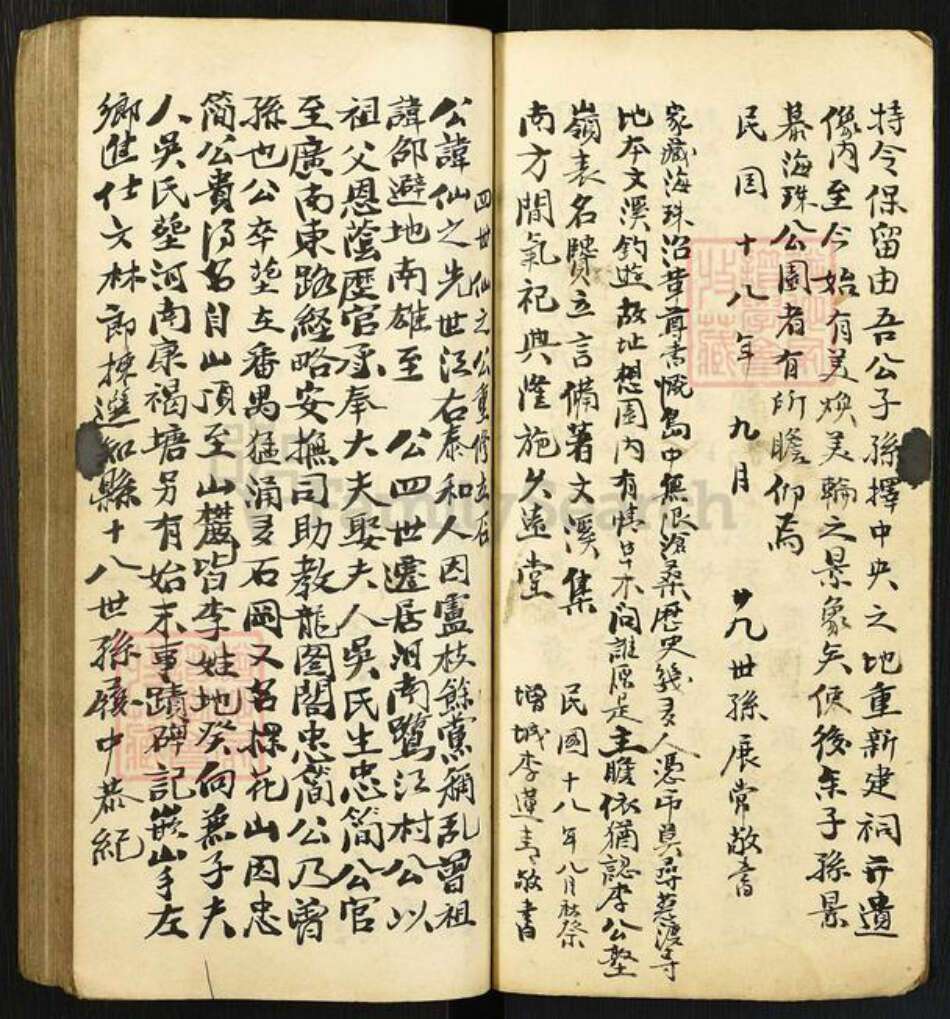 特令保留由吾公子孫擇中央之地重新建祠并遺
像內至今始有美煥美輪之景象矣使後來子孫景
慕海珠公園者有所瞻仰焉
民国十八年九月 廿九世孫展常敬書
家藏海珠沿革尊書慨島中無限滄桑歷史幾多人憑吊莫尋慈渡寺
地本文溪釣遊故址想園内有情草木问誰原是主瞻依猶認李公塾
嶺表名賢立言備著文溪集 民國十八年八月秋祭
南方間氣祀典隆施久遠堂 增城李蓮青敬書
四世仙之公重修立石
公諱仙之先世江右泰和人因盧枝餘黨稱乱曾祖
諱邰避地南雄至 公四世遷居河南鷺江村公以
祖父恩蔭歷官承奉大夫娶夫人吳氏生忠簡公官
至廣南東路経略安撫司助教龍圖閣忠簡公乃曾
孫也公卒塟左番禺猛涌多石岡又名探花山因忠
簡公貴得名自山頂至山麓皆李姓地癸向兼子夫
人吳氏塟河南康褐塘另有始末事蹟碑記嵌山手左
鄉進仕文林郎揀選知縣十八世孫履中恭紀
FamilySearch